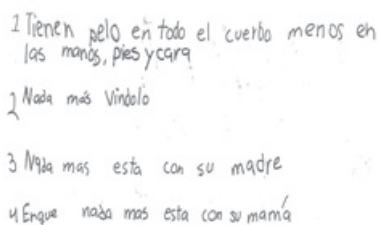 1 Tienen pelo en todo el cuerbo menos en
las manos, pies y cara
2 Nada más Vindolo
3 Nada mas esta con su madre
4 Enque nada mas esta con su mamá